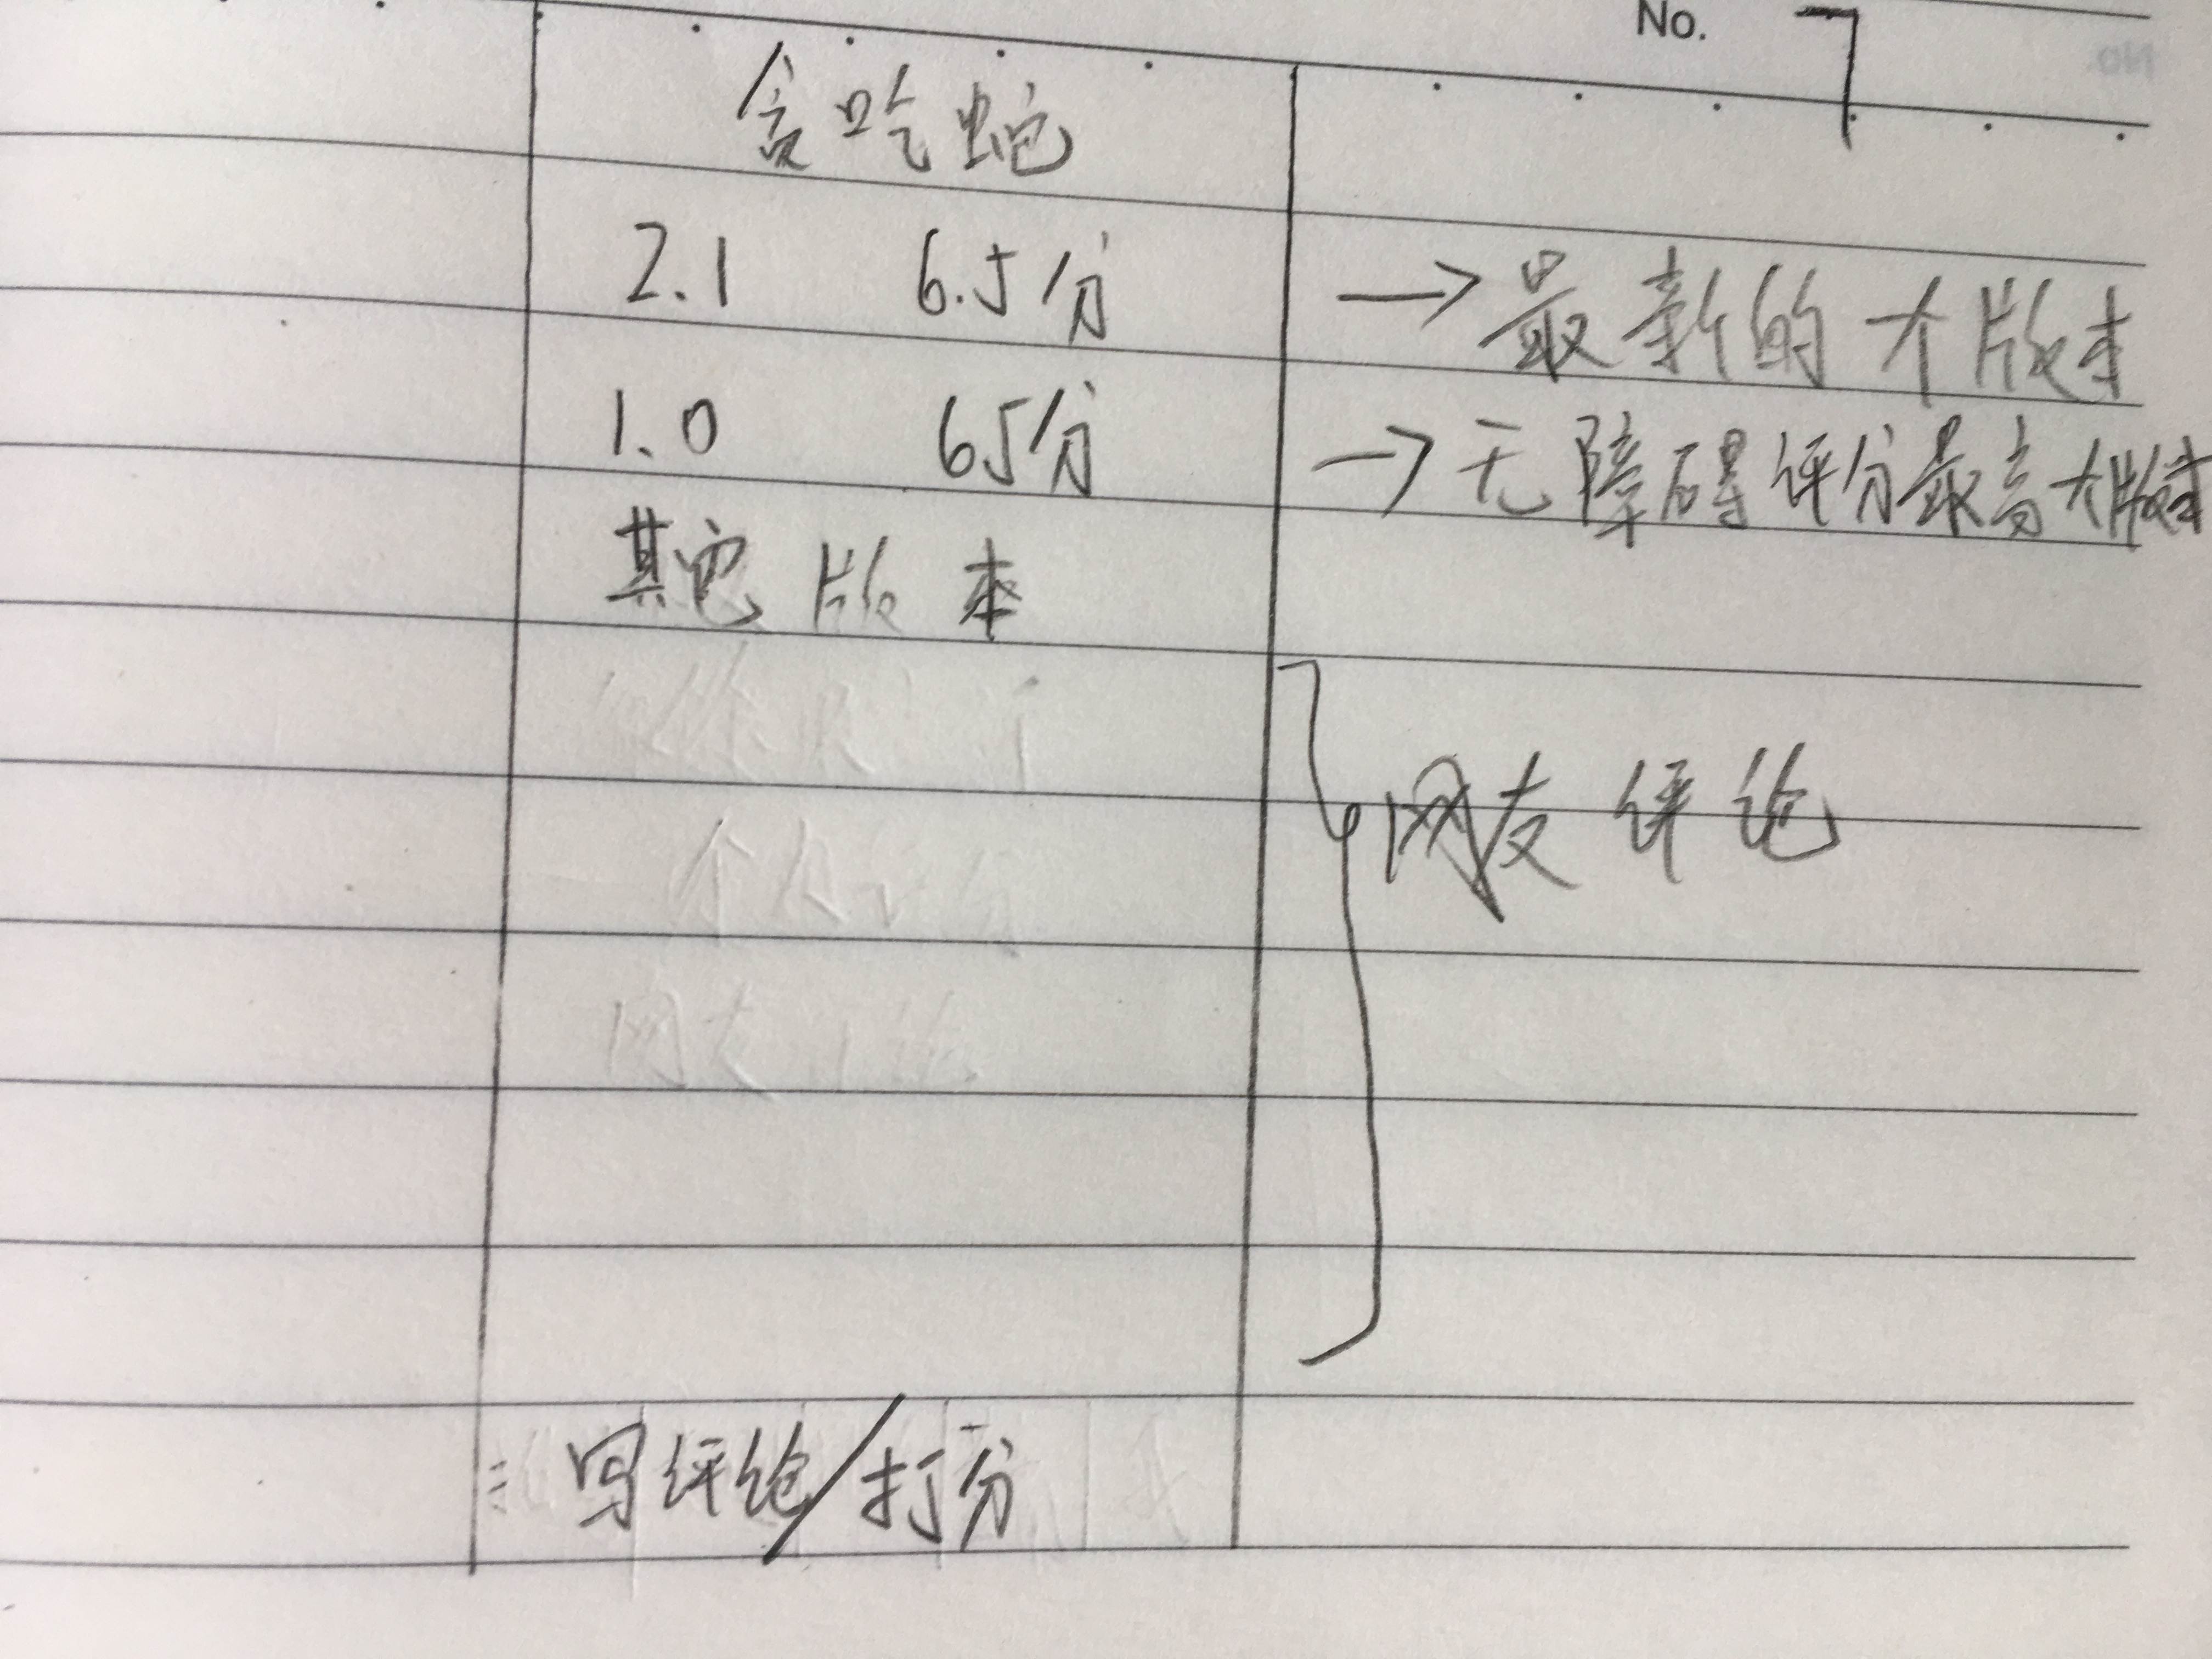 No. 7
贪吃蛇
2.1 6.5分 →最新的大版本
1.0 65分 →无障碍评分最高大版本
其它版本
网友评论
写评论/打分